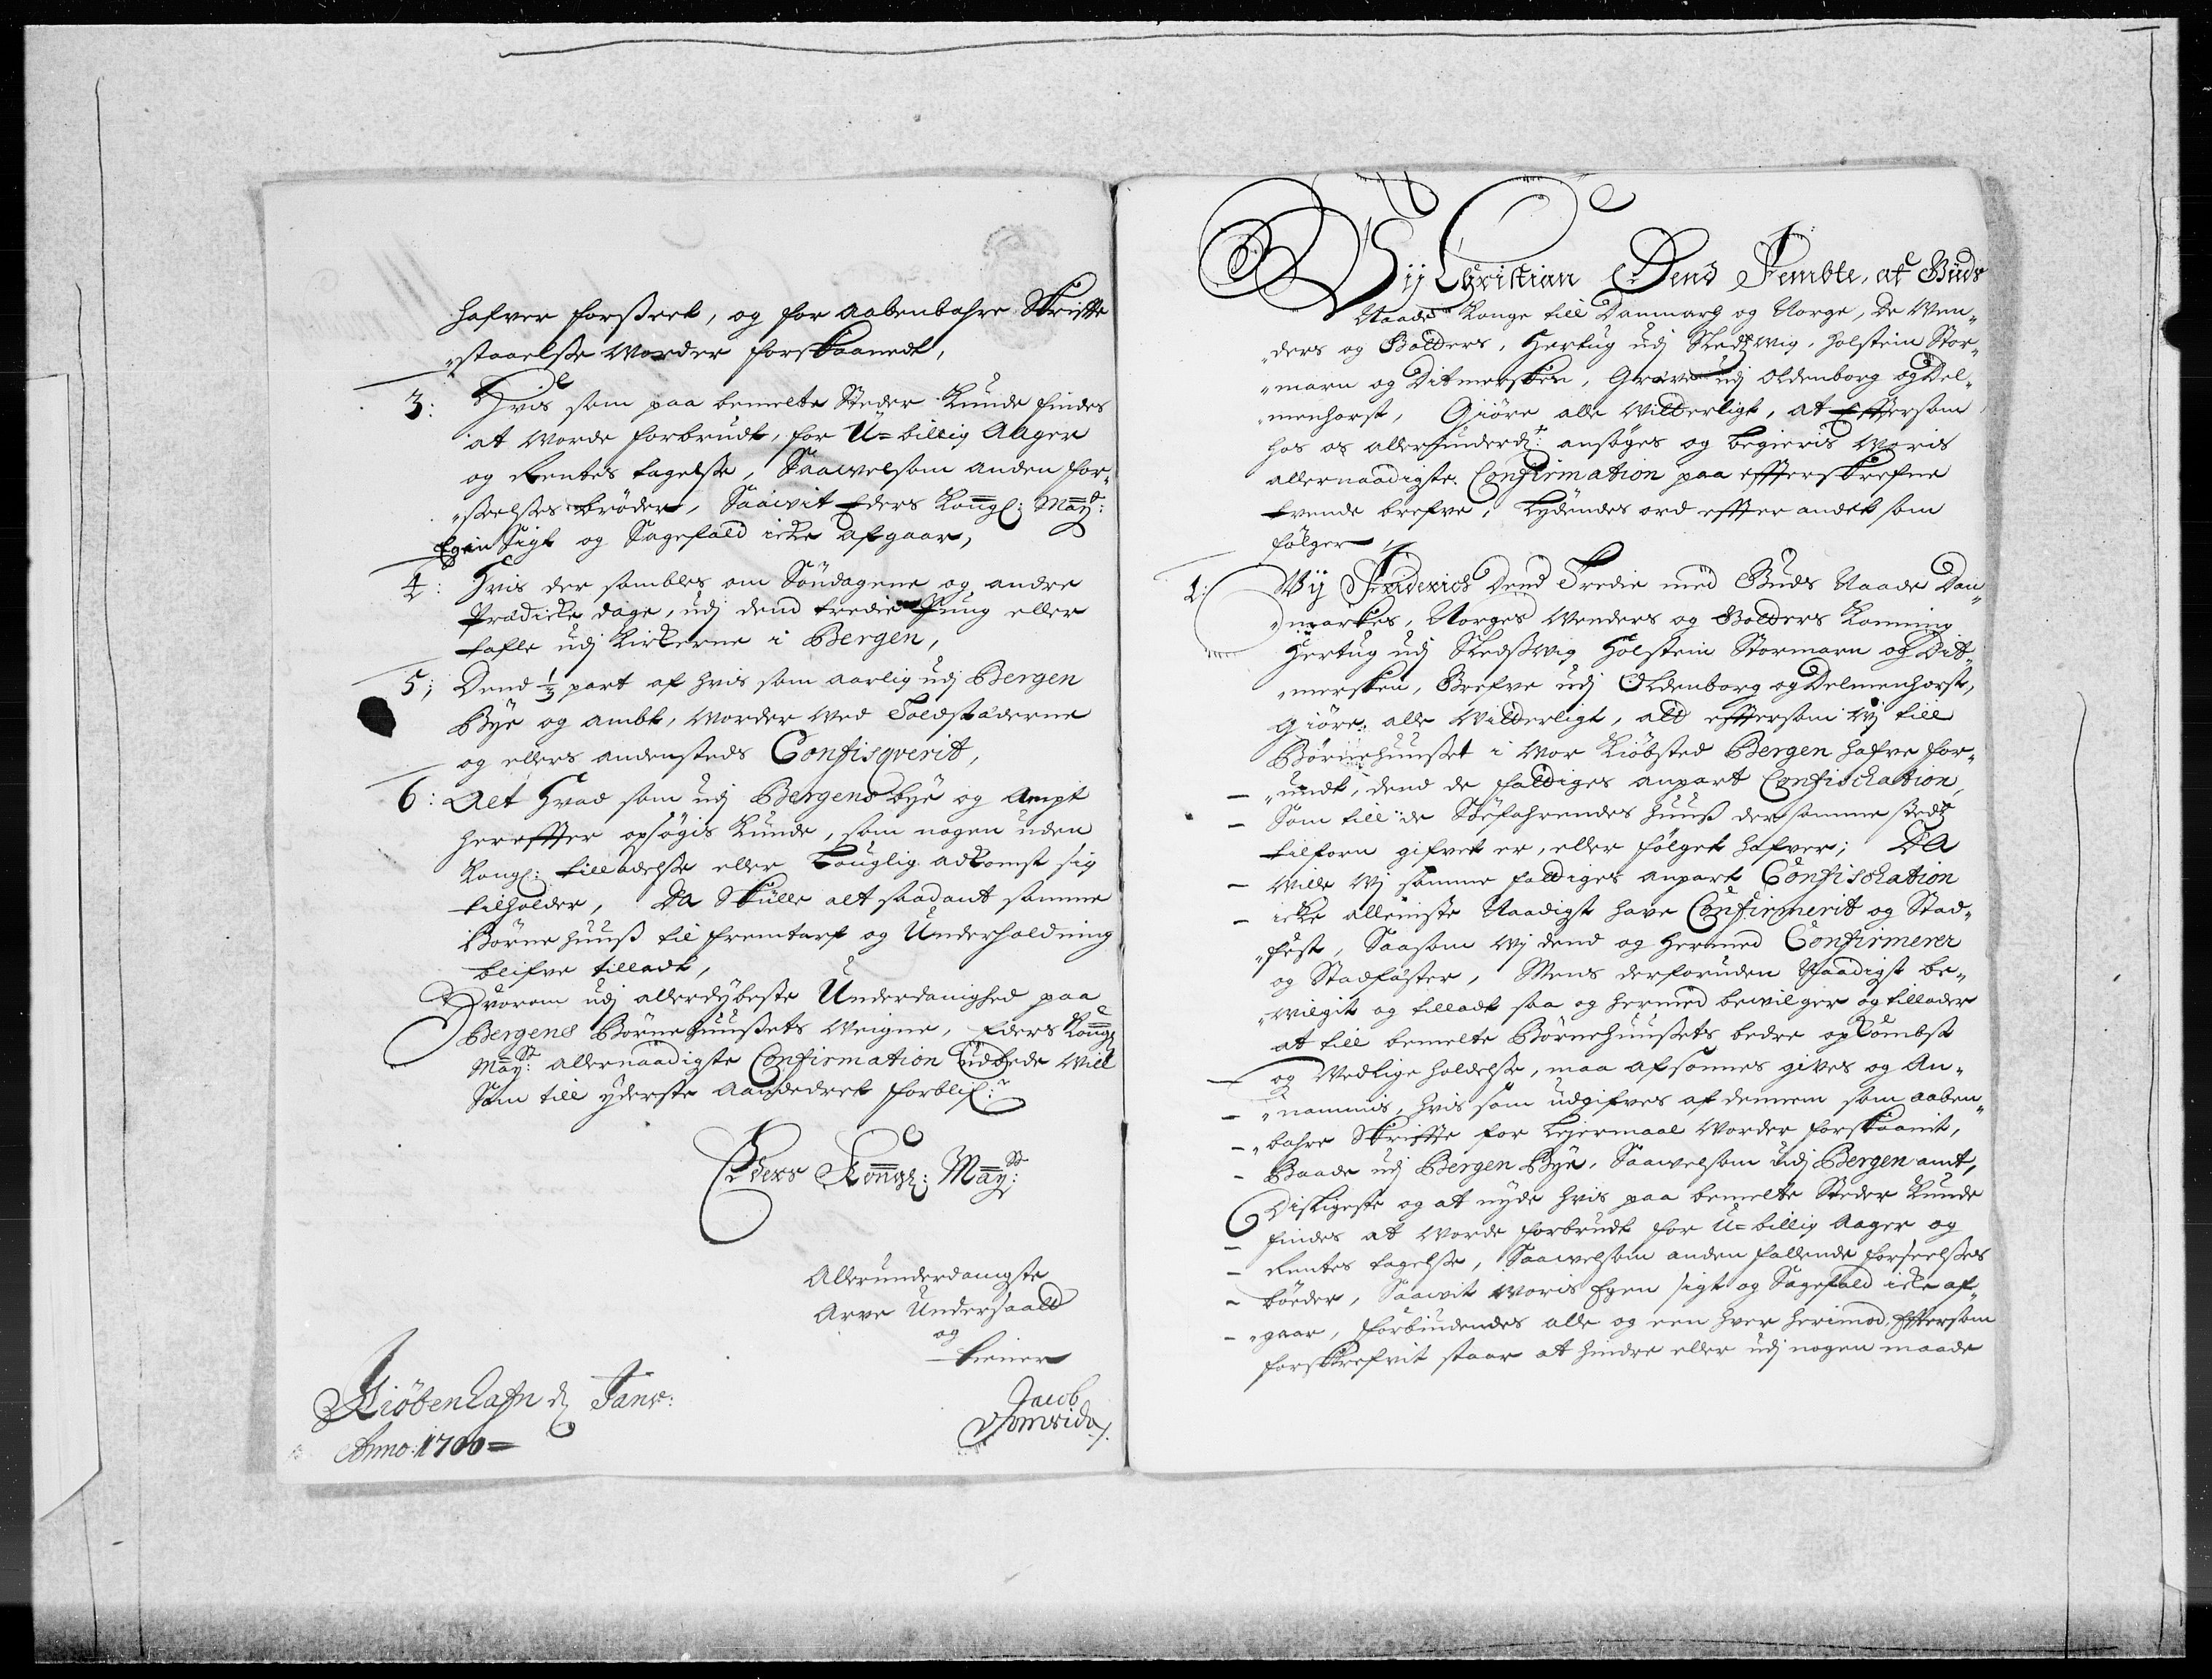 hafver forseet, og for aabenbahre Skrifte
„staaelsse Worder forskaanedt,
3: Hvis som paa bemelte Steder kunde findes
at worde forbrudt, for U=billig Aager
og Rentes tagelsse, Saavelsom anden for„
„seelsses bröder, Saavit Eders Kongl: May:
Egen Sigt og Sagefald icke afgaar,
4: Hvis der sambles om Söndagene og andre
Prædicke dage, udj dend tredie Pung eller
tafle udj kirkerne i Bergen,
5; Dend 1/3 part af hvis som aarlig udj Bergen
Bye og ambt, worder wed Toldstæderne
og ellers andensteds Confisqverit,
6: Alt Hvad som udj Bergens bye og Ampt
hereffter opsögis kunde, som nogen uden
Kongl: tilladelsse eller Louglig adkomst sig
tilholder, Da Skulle alt saadant samme
Börnehuuß til fremtarf og Underholdning
blifve tilladt,
Hvorom udj allerdybeste Underdanighed paa
Bergens Börnehuussets Weigne, Eders Kongl
Mayst: allernaadigste Confirmation udbede Will
Som till yderste Aandedret forblif:r
Eders Kongl: Mayst:
Allerunderdanigste
Arve Undersaatt
og
tiener
Jacob
Kiöbenhafn d Janv:
Anno: 1700=
Wij Christian Dend Fembte, af Guds
Naade Konge till Danmarg og Norge, de Wen„
„ders og Gotters, Hertug udj Sleßwig, Holstein Stor„
„marn og Ditmersken, Greve udj Oldenborg og Del„
„menhorst, Giöre alle Witterligt, at Effersom
hos os allerunderd:st ansöges og begieris Woris
allernaadigste Confirmation paa effterskrefne
tvende brefve, Lydendes ord effter andet som
fölger
1: Wij Friderich Dend Tredie med Guds Naade Dan„
„markes, Norges Wenders og Gotters Konning
Hertug udj Sledßwig Holstein Stormarn og Dit„
„mersken, Grefve udj Oldenborg og Delmenhorst,
Giöre alle Witterligt, att effersom Wj till
Börnehuusset i Wor Kiöbsted Bergen hafve for„
„undt, dend de fattiges anpart Confiscation,
Som till de Söefahrendes huuß der samme stedt
tilforn gifvet er, eller fölget hafver; Da
wille Wj samme fattiges anpart Confiscation
icke alleniste Naadigst have Confirmerit og Stad„
„fest, Saasom Wj dend og hermed Confirmerer
og Stadfäster, Mens derforuden Naadigst be„
„wilgit og tilladt saa og hermed bewilger og tillader
at till bemelte Börnehuussets bedre opkombst
og Wedlige holdelsse, maa afsonnes gives og An„
„nammis, hvis som udgifves af dennem som aaben„
„bahre Skriffte for Lejermaal Worder forskaanit,
Baade udj Bergen Bye, Saavelsom udj Bergen amt,
Disligeste og at nyde hvis paa bemelte Steder kunde
findes at Worde forbrudt for U=billig Aager og
Rentes tagelsse, Saavelsom anden fallende forseelsses
böeder, Saavit Woris Egen sigt og Sagefald icke af„
„gaar, Forbiudendes alle og een hver herimod, Effersom
forskrefvit staar at hindre eller udj nogen maade